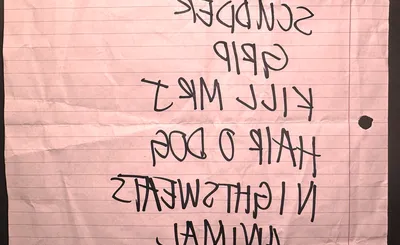 SCUDDER
GRIP
KILL MR J
HAIR O DOG
NIGHTSWEATS
ANIMAL